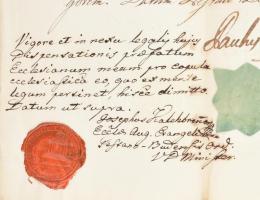 Vigore et in nexu legalis hujus
Dispensationis præfatum
Ecclesianum meum pro copula
ecclesiastica eo, quo est mente
legum pertinet, hisce dimitto.
Datum ut supra.
Josephus
Eccles. Aug. Evangelicæ
Budensis Ord.
V. D. Minister.